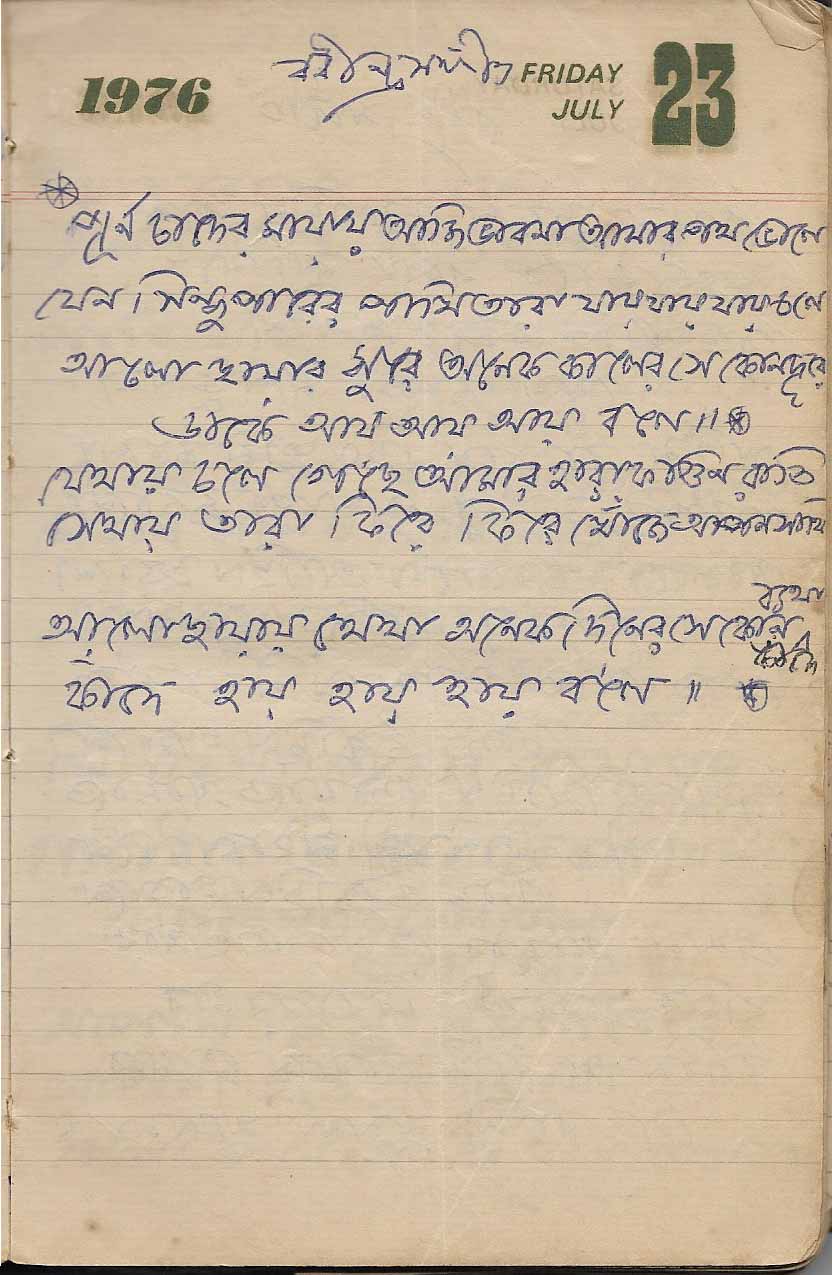 1976
রবীন্দ্রসঙ্গীত
FRIDAY
JULY
23
পূর্ন চাদের মায়ায় আজি ভাবনা আমার পথ ভোলে
যেন সিন্ধুপারের পাখি তারা যায় যায় যায় চলে
আলো ছায়ার সুরে অনেক কালের সে কোন দূরে
ডাকে আয় আয় আয় বলে॥
যেথায় চলে গেছে আমার হারা ফাগুন রাতি
সেথায় তারা ফিরে ফিরে খোঁজে আপন সাথি
আলোছায়ায় যেথা অনেক দিনের সে কোন ব্যথা
কাঁদে হায় হায় হায় বলে॥